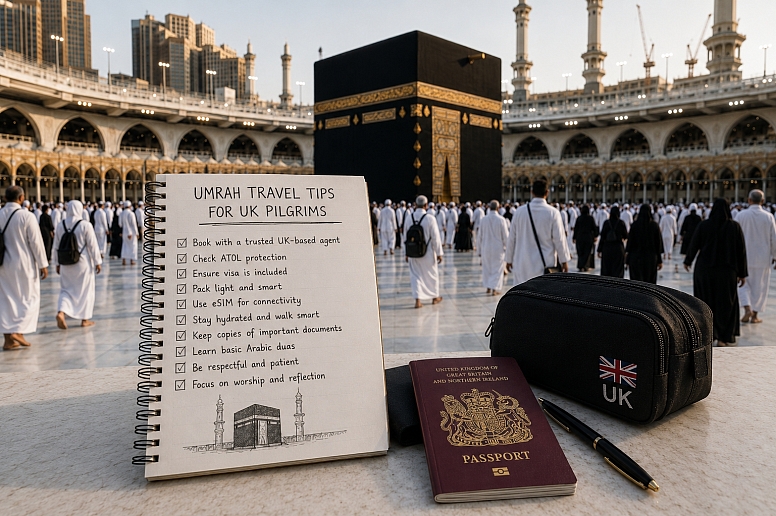 UMRAH TRAVEL TIPS
FOR UK PILGRIMS
Book with a trusted UK-based agent
Check ATOL protection
Ensure visa is included
Pack light and smart
Use eSIM for connectivity
Stay hydrated and walk smart
Keep copies of important documents
Learn basic Arabic duas
Be respectful and patient
Focus on worship and reflection
UNITED KINGDOM OF
GREAT BRITAIN
AND NORTHERN IRELAND
PASSPORT
UK